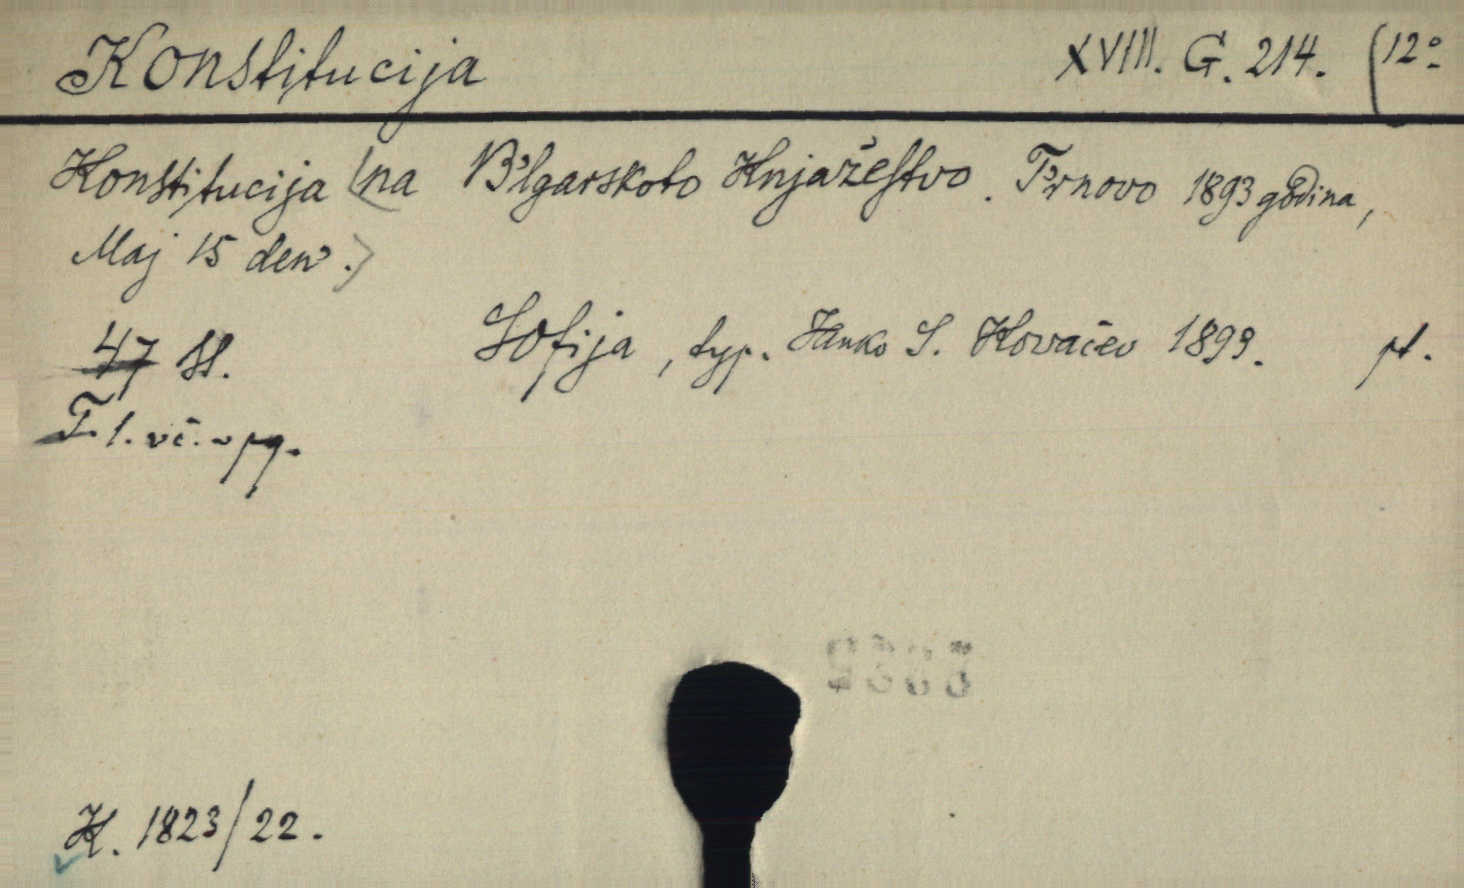 Konstitucija XVIII. G. 214. (12°
Konstitucija (na B'lgarskoto Knjažestvo. T'rnovo 1893 godina,
Maj 15 den'.)
47 St. Sofija, typ. Janko S. Kovačev 1893. pt.
T. l. vč. v pg.
K. 1823/22.